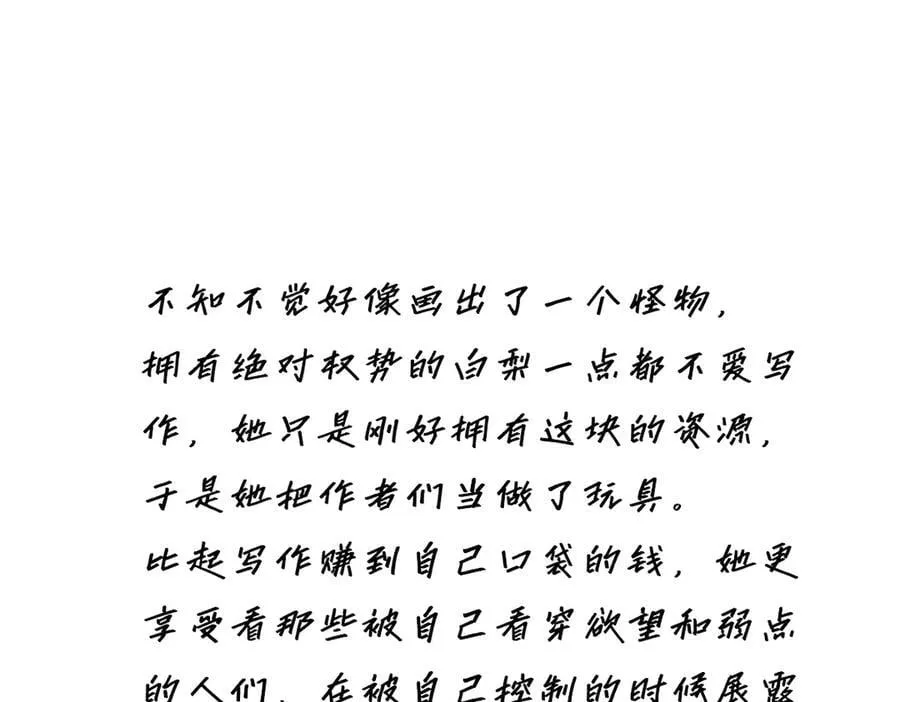 不知不觉好像画出了一个怪物，
拥有绝对权势的白梨一点都不爱写
作，她只是刚好拥有这块的资源，
于是她把作者们当做了玩具。
比起写作赚到自己口袋的钱，她更
享受看那些被自己看穿欲望和弱点
的人们，在被自己控制的时候展露